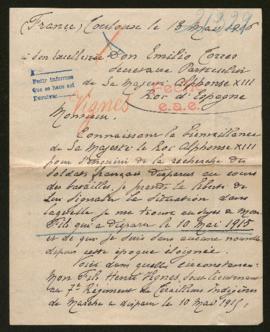 (France) Toulouse le 18 Mai 1916
à Son Excellence Don Emilio Torres
Secrétaire Particulier
de Sa Majesté Alphonse XIII
Roi d'Espagne
Pedir informes
Que se hace así
Vignes
Monsieur.
Connaissant la bienveillance
de Sa Majesté le Roi Alphonse XIII
pour s'enquérir de la recherche des
soldats français disparus au cours
des batailles, je prends la liberté de
lui signaler la situation dans
laquelle je me trouve au sujet de mon
Fils qui a disparu le 10 Mai 1915
et de qui je suis sans aucune nouvelle
depuis cette époque éloignée.
Voici dans quelle circonstance:
Mon Fils Henri Vignes, sous-lieutenant
au 7e Régiment de Tirailleurs Indigènes
de Marche a disparu le 10 Mai 1915,